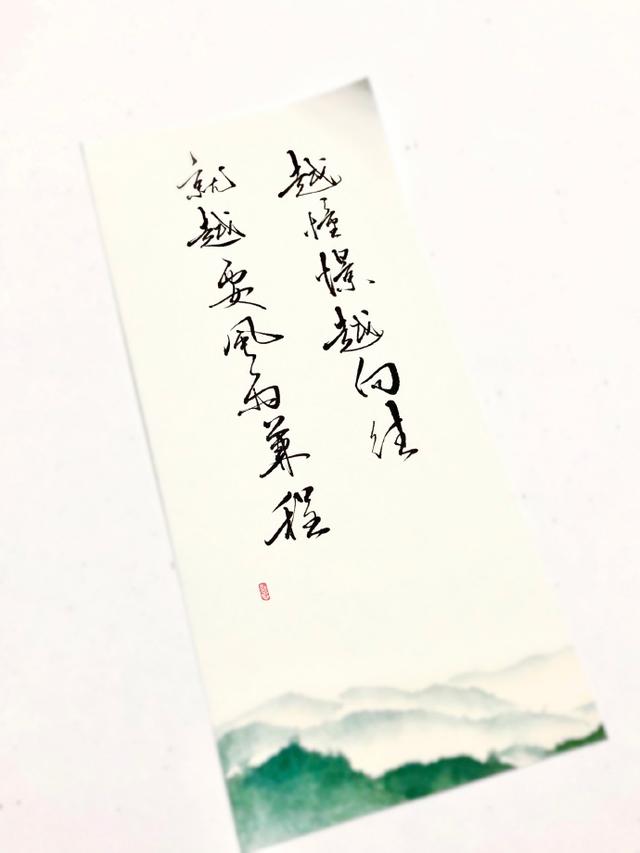 越憧憬越向往
就越要風雨兼程